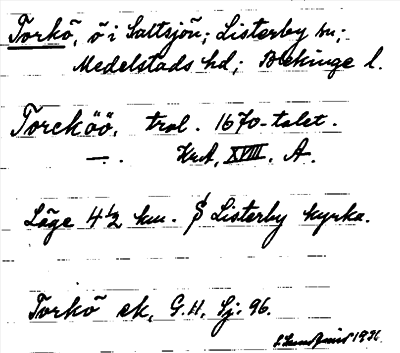 Torkö, ö i Saltsjön; Listerby sn;
Medelstads hd; Blekinge l.
Torcköö, trol. 1670-talet.
—. KrA, XVIII. A.
Läge 4½ km. S Listerby kyrka.
Torkö ek, G.H, Sj. 96.
1936